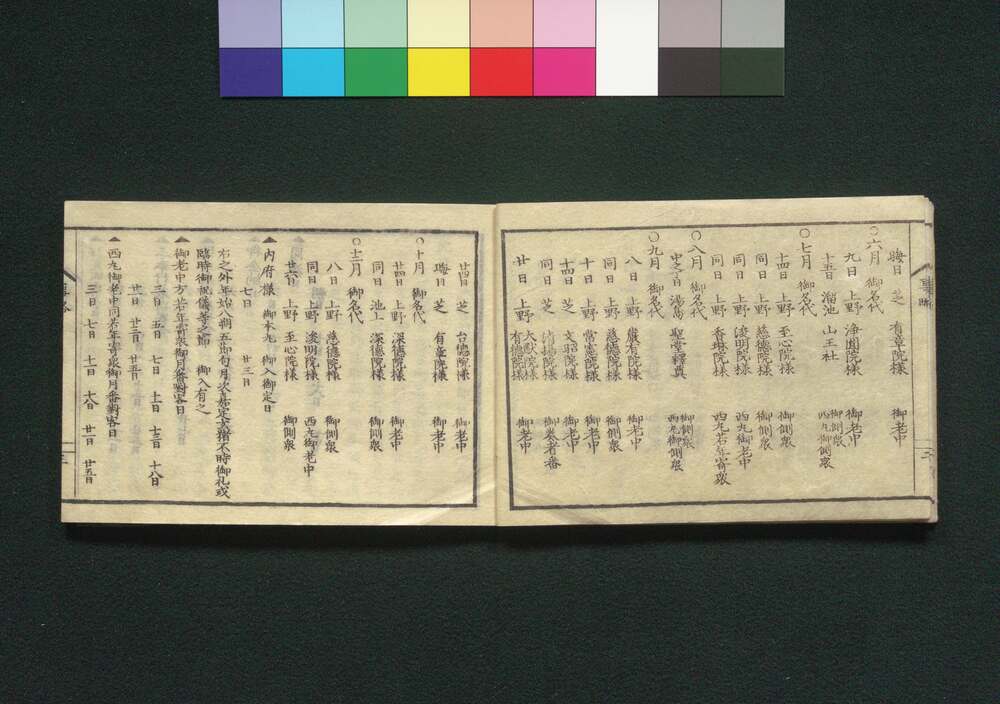 晦日 芝 有章院様 御老中
○六月 御名代
九日 上野 浄圓院様 御老中
十五日 溜池 山王社 御側衆 西丸御側衆
○七月 御名代
十四日 上野 至心院様 御側衆
同日 上野 慈徳院様 御側衆
同日 上野 浚明院様 西丸御老中
同日 上野 香琳院様 西丸若年寄衆
○八月 御名代
中之丁日 湯島 聖堂釋奠 御側衆 西丸御側衆
○九月 御名代
八日 上野 嚴有院様 御老中
同日 上野 慈徳院様 御側衆
十日 上野 常憲院様 御老中
十四日 芝 文昭院様 御老中
同日 芝 清揚院様 御奏者番
廿日 上野 大猷院様 有徳院様 御老中
廿四日 芝 台徳院様 御老中
晦日 芝 有章院様 御老中
○十月 御名代
廿四日 上野 深徳院様 御老中
同日 池上 深徳院様 御側衆
○十二月 御名代
八日 上野 慈徳院様 御側衆
同日 上野 浚明院様 西丸御老中
廿六日 上野 至心院様 御側衆
▲内府様 御本丸江御入御定日
七日 廿三日
右之外年始八朔五節句月次嘉定玄猪不時御礼或
臨時御祝儀等之節 御入有之
▲御老中方若年寄衆御月番對客日
三日 五日 七日 十一日 十三日 十八日
廿日 廿三日 廿五日
▲西丸御老中同若年寄衆御月番對客日
三日 七日 十一日 十八日 廿一日 廿五日